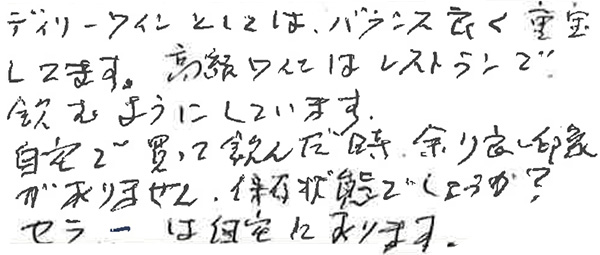 デイリーワインとしては、バランス良く重宝
してます。高額ワインはレストランで
飲むようにしています。
自宅で買って飲んだ時、余り良い印象
がありません。保存状態でしょうか？
セラーは自宅にあります。